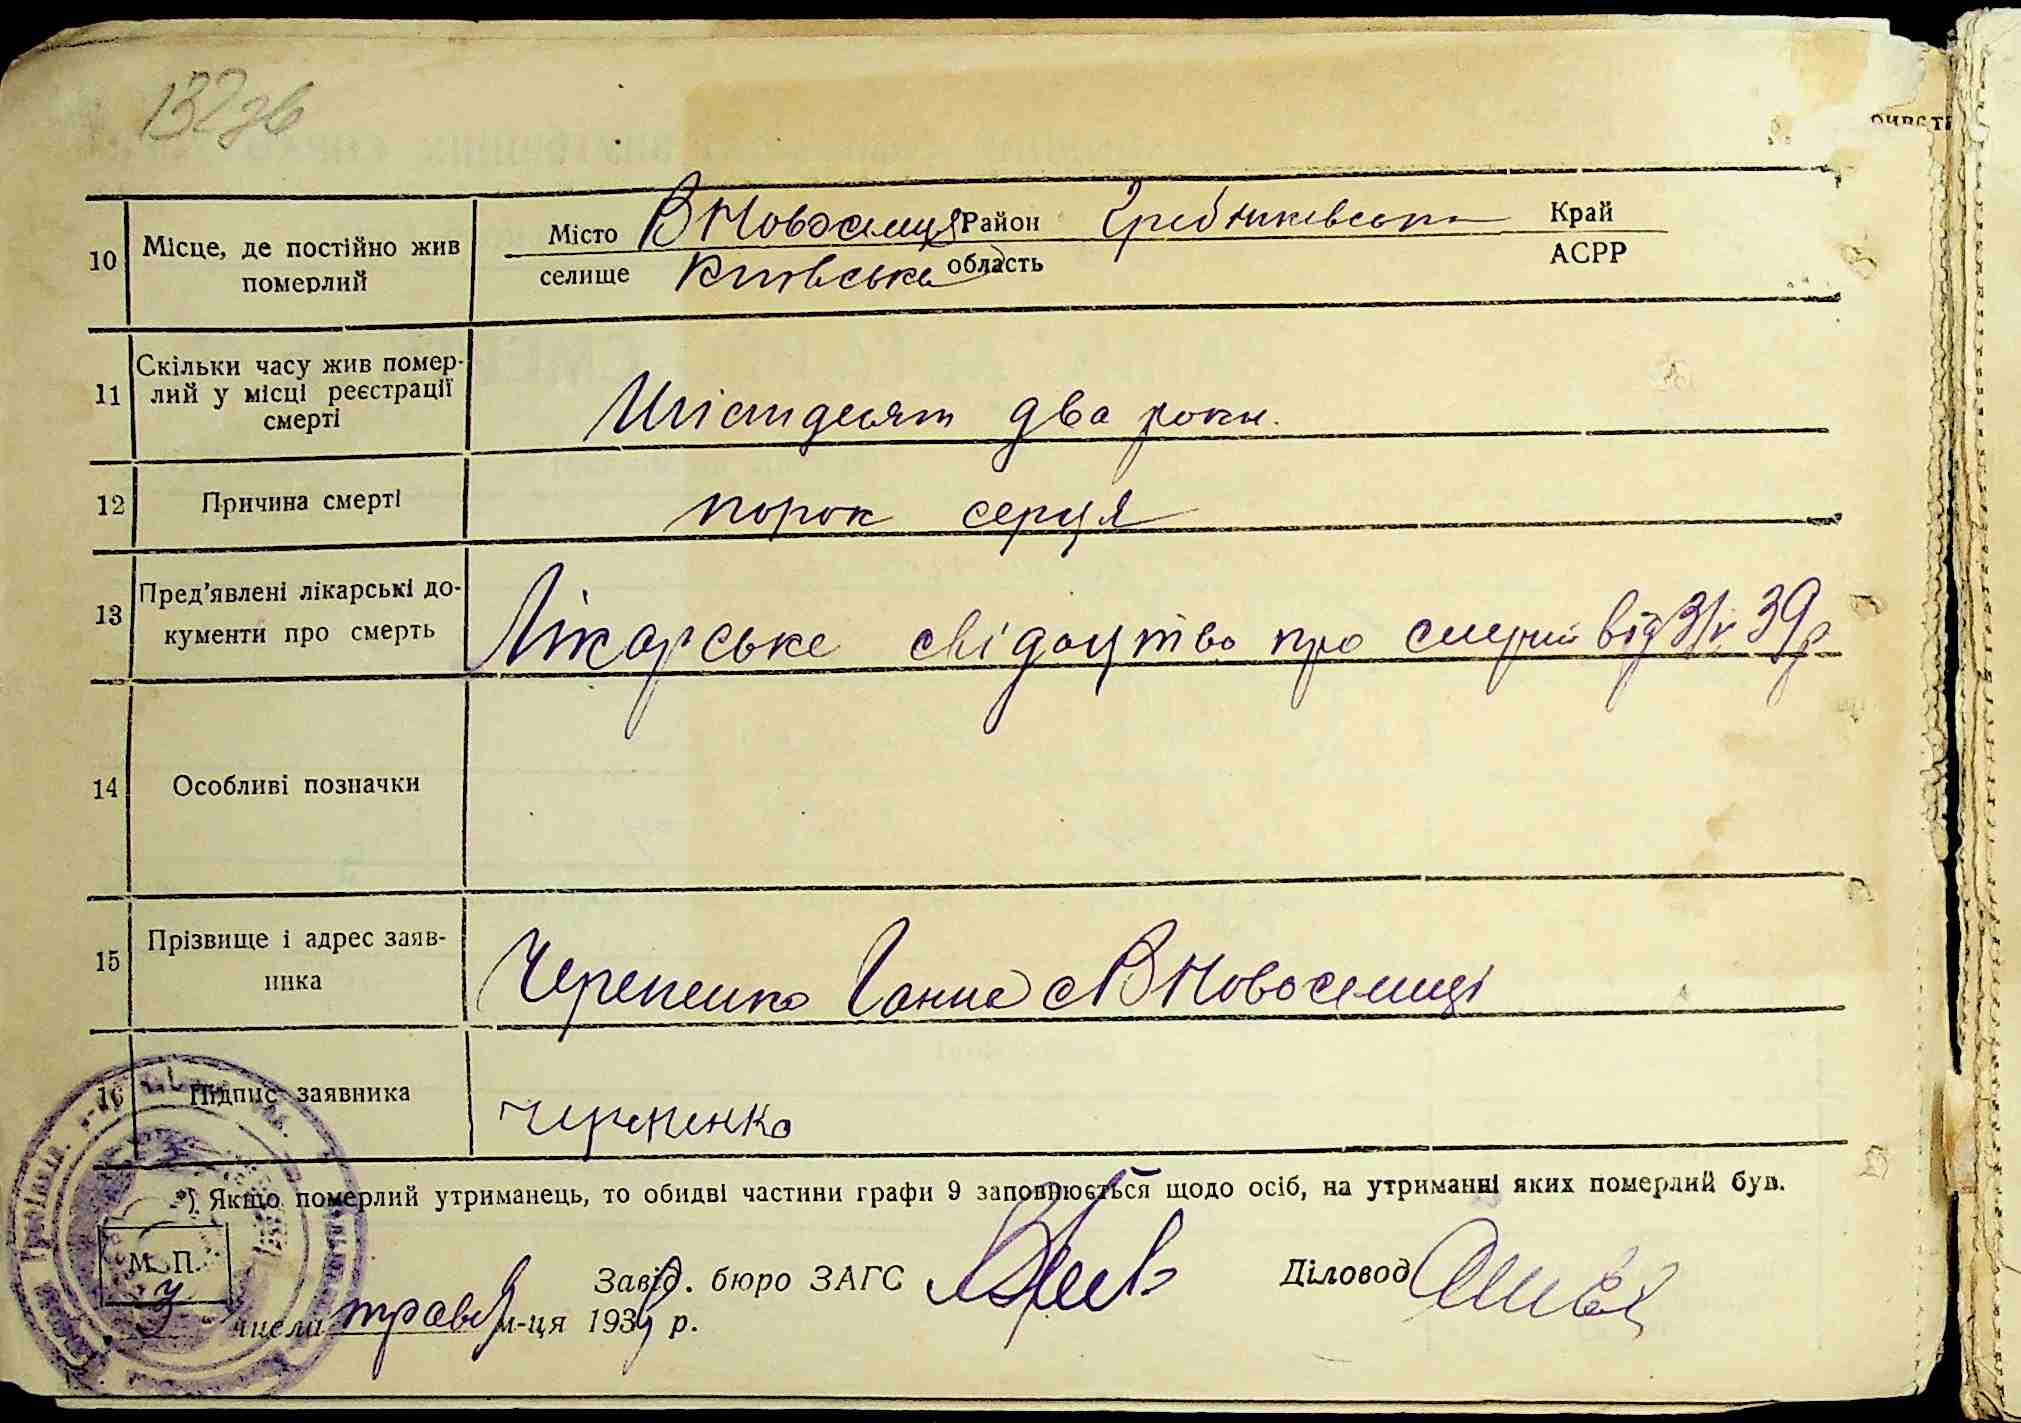 132зв
10 Місце, де постійно жив померлий
Місто В Новоселиця Район Гребінківська Край
селище Київська область АСРР
11 Скільки часу жив помер-
лий у місці реєстрації
смерті
Шістдесят два роки.
12 Причина смерті порок серця
13 Пред'явлені лікарські до-
кументи про смерть
Лікарське свідоцтво про смерть від 3/V 39 р
14 Особливі позначки
15 Прізвище і адрес заяв-
ника
Черененко Ганна с В Новоселиці
16 Підпис заявника Черененко
*) Якщо померлий утриманець, то обидві частини графи 9 заповнюється щодо осіб, на утриманні яких померлий був.
М. П.
Завід. бюро ЗАГС Діловод
3 числа травня м-ця 1939 р.